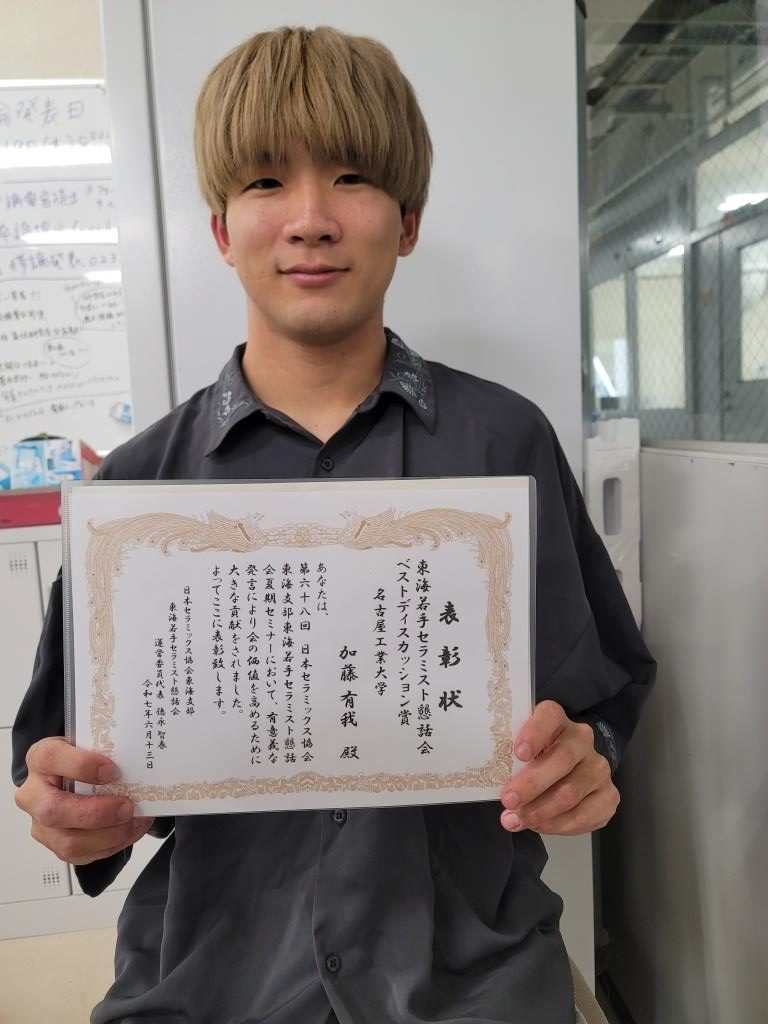 表彰状
東海若手セラミスト懇話会
ベストディスカッション賞
名古屋工業大学
加藤有我 殿
あなたは、
第六十八回 日本セラミックス協会
東海支部東海若手セラミスト懇話
会夏期セミナーにおいて、有意義な
発言により会の価値を高めるために
大きな貢献をされました。
よってここに表彰致します。
日本セラミックス協会東海支部
東海若手セラミスト懇話会
運営委員代表 徳永智春
令和七年六月十三日
発表日
修論発表